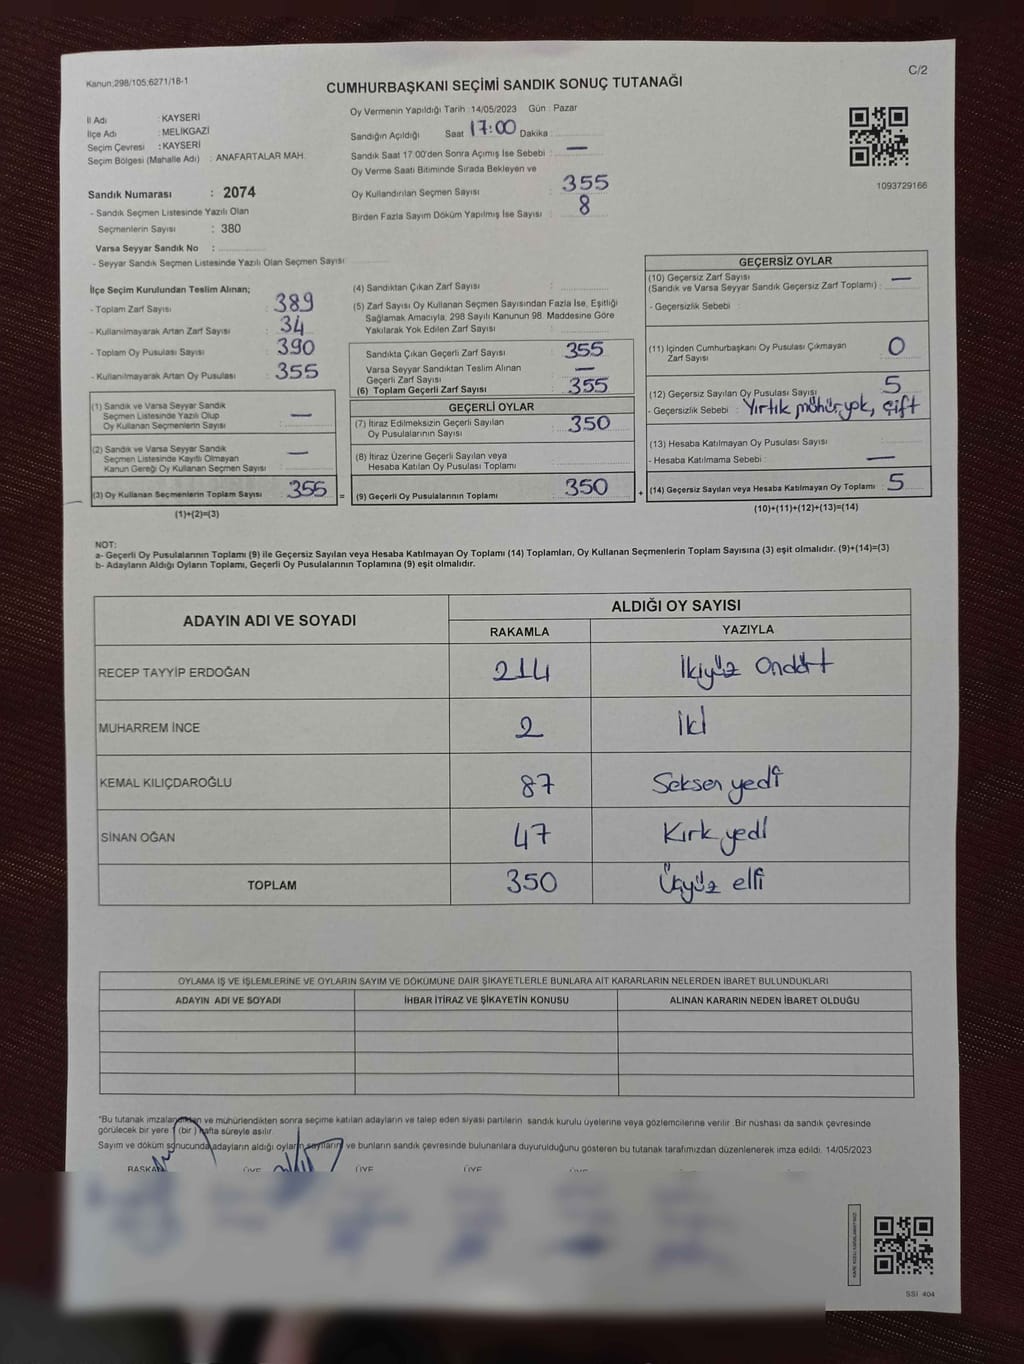 Kanun;298/105;6271/18-1
C/2
CUMHURBAŞKANI SEÇİMİ SANDIK SONUÇ TUTANAĞI
İl Adı : KAYSERİ
İlçe Adı : MELİKGAZİ
Seçim Çevresi : KAYSERİ
Seçim Bölgesi (Mahalle Adı) : ANAFARTALAR MAH.
Sandık Numarası : 2074
- Sandık Seçmen Listesinde Yazılı Olan
Seçmenlerin Sayısı : 380
Varsa Seyyar Sandık No :
- Seyyar Sandık Seçmen Listesinde Yazılı Olan Seçmen Sayısı:
Oy Vermenin Yapıldığı Tarih :14/05/2023 Gün : Pazar
Sandığın Açıldığı Saat 17:00 Dakika :
Sandık Saat 17:00'den Sonra Açımış İse Sebebi : —
Oy Verme Saati Bitiminde Sırada Bekleyen ve
Oy Kullandırılan Seçmen Sayısı : 355
Birden Fazla Sayım Döküm Yapılmış İse Sayısı : 8
1093729166
İlçe Seçim Kurulundan Teslim Alınan;
- Toplam Zarf Sayısı : 389
- Kullanılmayarak Artan Zarf Sayısı : 34
- Toplam Oy Pusulası Sayısı : 390
- Kullanılmayarak Artan Oy Pusulası : 355
(1) Sandık ve Varsa Seyyar Sandık
Seçmen Listesinde Yazılı Olup
Oy Kullanan Seçmenlerin Sayısı : —
(2) Sandık ve Varsa Seyyar Sandık
Seçmen Listesinde Kayıtlı Olmayan
Kanun Gereği Oy Kullanan Seçmen Sayısı : —
(3) Oy Kullanan Seçmenlerin Toplam Sayısı : 355 =
(1)+(2)=(3)
(4) Sandıktan Çıkan Zarf Sayısı :
(5) Zarf Sayısı Oy Kullanan Seçmen Sayısından Fazla İse, Eşitliği
Sağlamak Amacıyla, 298 Sayılı Kanunun 98. Maddesine Göre
Yakılarak Yok Edilen Zarf Sayısı :
Sandıkta Çıkan Geçerli Zarf Sayısı : 355
Varsa Seyyar Sandıktan Teslim Alınan
Geçerli Zarf Sayısı : —
(6) Toplam Geçerli Zarf Sayısı : 355
GEÇERLİ OYLAR
(7) İtiraz Edilmeksizin Geçerli Sayılan
Oy Pusulalarının Sayısı : 350
(8) İtiraz Üzerine Geçerli Sayılan veya
Hesaba Katılan Oy Pusulası Toplamı :
(9) Geçerli Oy Pusulalarının Toplamı : 350 +
GEÇERSİZ OYLAR
(10) Geçersiz Zarf Sayısı
(Sandık ve Varsa Seyyar Sandık Geçersiz Zarf Toplamı) : —
- Geçersizlik Sebebi :
(11) İçinden Cumhurbaşkanı Oy Pusulası Çıkmayan
Zarf Sayısı : 0
(12) Geçersiz Sayılan Oy Pusulası Sayısı : 5
- Geçersizlik Sebebi : Yırtık, mühür yok, çift
(13) Hesaba Katılmayan Oy Pusulası Sayısı :
- Hesaba Katılmama Sebebi : —
(14) Geçersiz Sayılan veya Hesaba Katılmayan Oy Toplamı : 5
(10)+(11)+(12)+(13)=(14)
NOT:
a- Geçerli Oy Pusulalarının Toplamı (9) ile Geçersiz Sayılan veya Hesaba Katılmayan Oy Toplamı (14) Toplamları, Oy Kullanan Seçmenlerin Toplam Sayısına (3) eşit olmalıdır. (9)+(14)=(3)
b- Adayların Aldığı Oyların Toplamı, Geçerli Oy Pusulalarının Toplamına (9) eşit olmalıdır.
ADAYIN ADI VE SOYADI
ALDIĞI OY SAYISI
RAKAMLA YAZIYLA
RECEP TAYYİP ERDOĞAN 214 İkiyüz Ondört
MUHARREM İNCE 2 İki
KEMAL KILIÇDAROĞLU 87 Seksen yedi
SİNAN OĞAN 47 Kırk yedi
TOPLAM 350 Üçyüz elli
OYLAMA İŞ VE İŞLEMLERİNE VE OYLARIN SAYIM VE DÖKÜMÜNE DAİR ŞİKAYETLERLE BUNLARA AİT KARARLARIN NELERDEN İBARET BULUNDUKLARI
ADAYIN ADI VE SOYADI İHBAR İTİRAZ VE ŞİKAYETİN KONUSU ALINAN KARARIN NEDEN İBARET OLDUĞU
*Bu tutanak imzalandıktan ve mühürlendikten sonra seçime katılan adayların ve talep eden siyasi partilerin sandık kurulu üyelerine veya gözlemcilerine verilir. Bir nüshası da sandık çevresinde
görülecek bir yere 1 (bir ) hafta süreyle asılır.
Sayım ve döküm sonucunda adayların aldığı oyların sayılarını ve bunların sandık çevresinde bulunanlara duyurulduğunu gösteren bu tutanak tarafımızdan düzenlenerek imza edildi. 14/05/2023
BAŞKAN ÜYE ÜYE ÜYE
SSİ 404